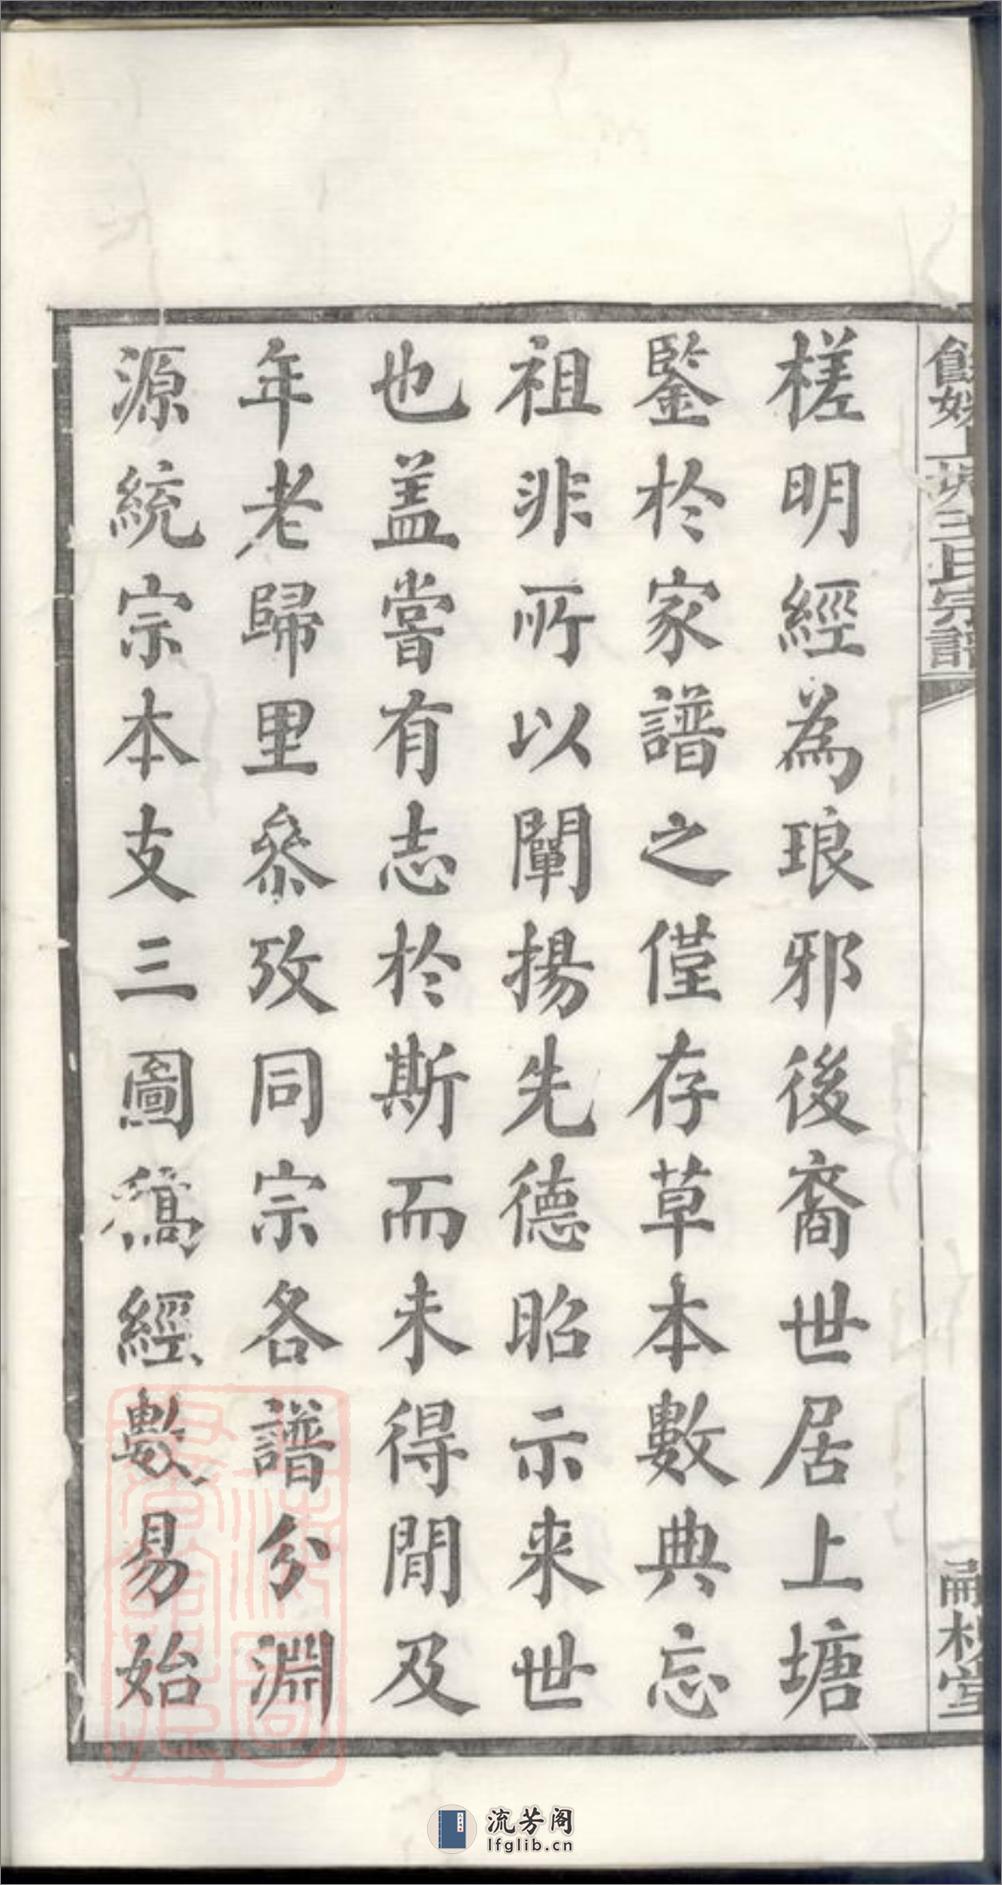 槎明經為琅邪後裔世居上塘
鍳於家譜之僅存草本數典忘
祖非所以闡揚先德昭示來世
也盖嘗有志於斯而未得閒及
年老歸里叅攷同宗各譜分淵
源統宗本支三圖稿經數易始
流芳阁
lfglib.cn